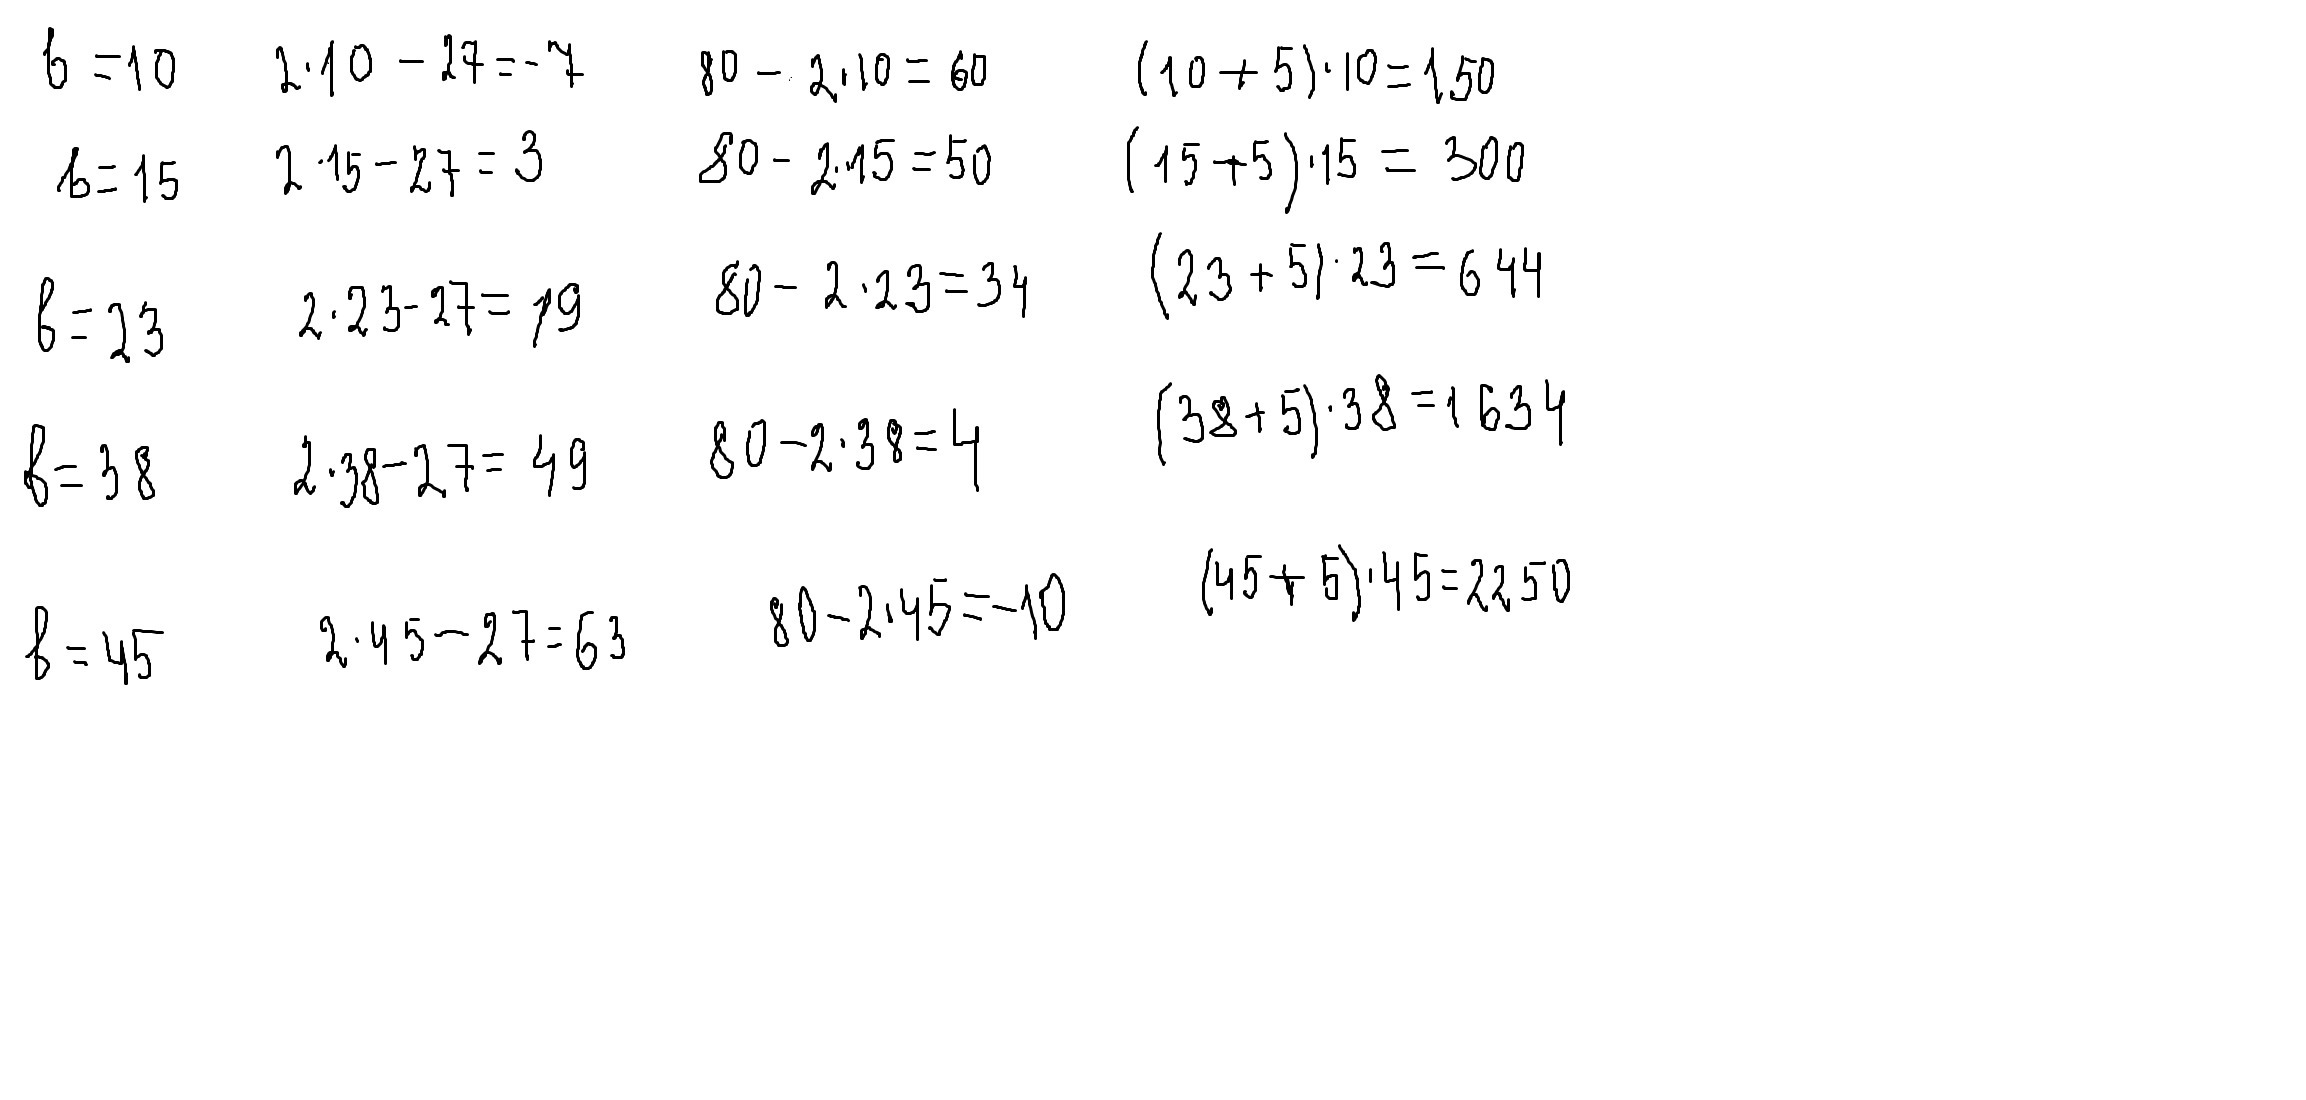 b = 10 2·10 - 27 = -7 80 - 2·10 = 60 (10 + 5)·10 = 150
b = 15 2·15 - 27 = 3 80 - 2·15 = 50 (15 + 5)·15 = 300
b = 23 2·23 - 27 = 19 80 - 2·23 = 34 (23 + 5)·23 = 644
b = 38 2·38 - 27 = 49 80 - 2·38 = 4 (38 + 5)·38 = 1634
b = 45 2·45 - 27 = 63 80 - 2·45 = -10 (45 + 5)·45 = 2250